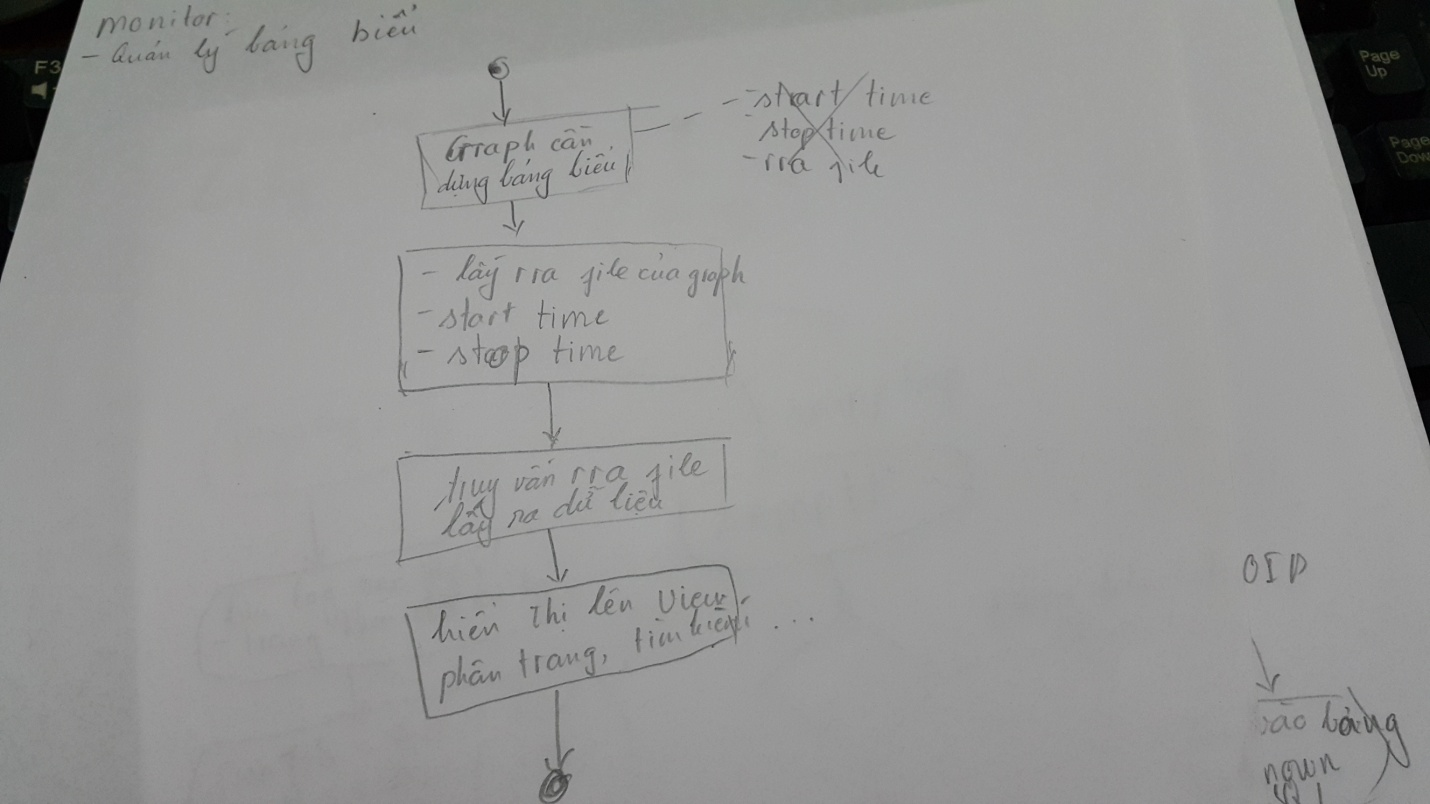 monitor:
- Quản lý bảng biểu
Graph cần
dựng bảng biểu
- start time
stop time
- rra file
- lấy rra file của graph
- start time
- stop time
truy vấn rra file
lấy ra dữ liệu
hiển thị lên View
phân trang, tìm kiếm ...
OID
vào bảng
nown
F3
Page
Up
Page
Dow